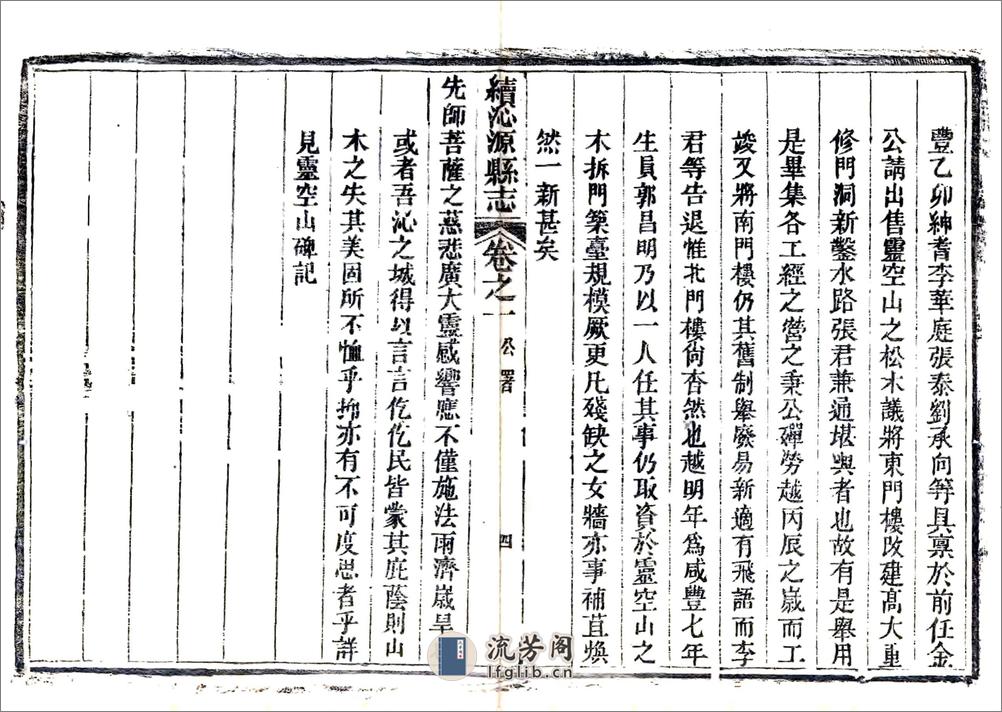 豐乙卯紳耆李華庭張泰劉承向等具稟於前任金
公請出售靈空山之松木議將東門樓改建高大重
修門洞新鑿水路張君兼通堪輿者也故有是舉用
是畢集各工經之營之秉公殫勞越丙辰之歲而工
竣又將南門樓仍其舊制舉廢易新適有飛語而李
君等告退惟北門樓尙杳然也越明年爲咸豐七年
生員郭昌明乃以一人任其事仍取資於靈空山之
木拆門築臺規模厥更凡殘缺之女牆亦事補苴煥
然一新甚矣
續沁源縣志 卷之一 公署 四
先師菩薩之慈悲廣大靈感響應不僅施法雨濟歲旱
或者吾沁之城得以言言仡仡民皆蒙其庇蔭則山
木之失其美固所不恤乎抑亦有不可度思者乎詳
見靈空山碑記
流芳阁
lfglib.cn